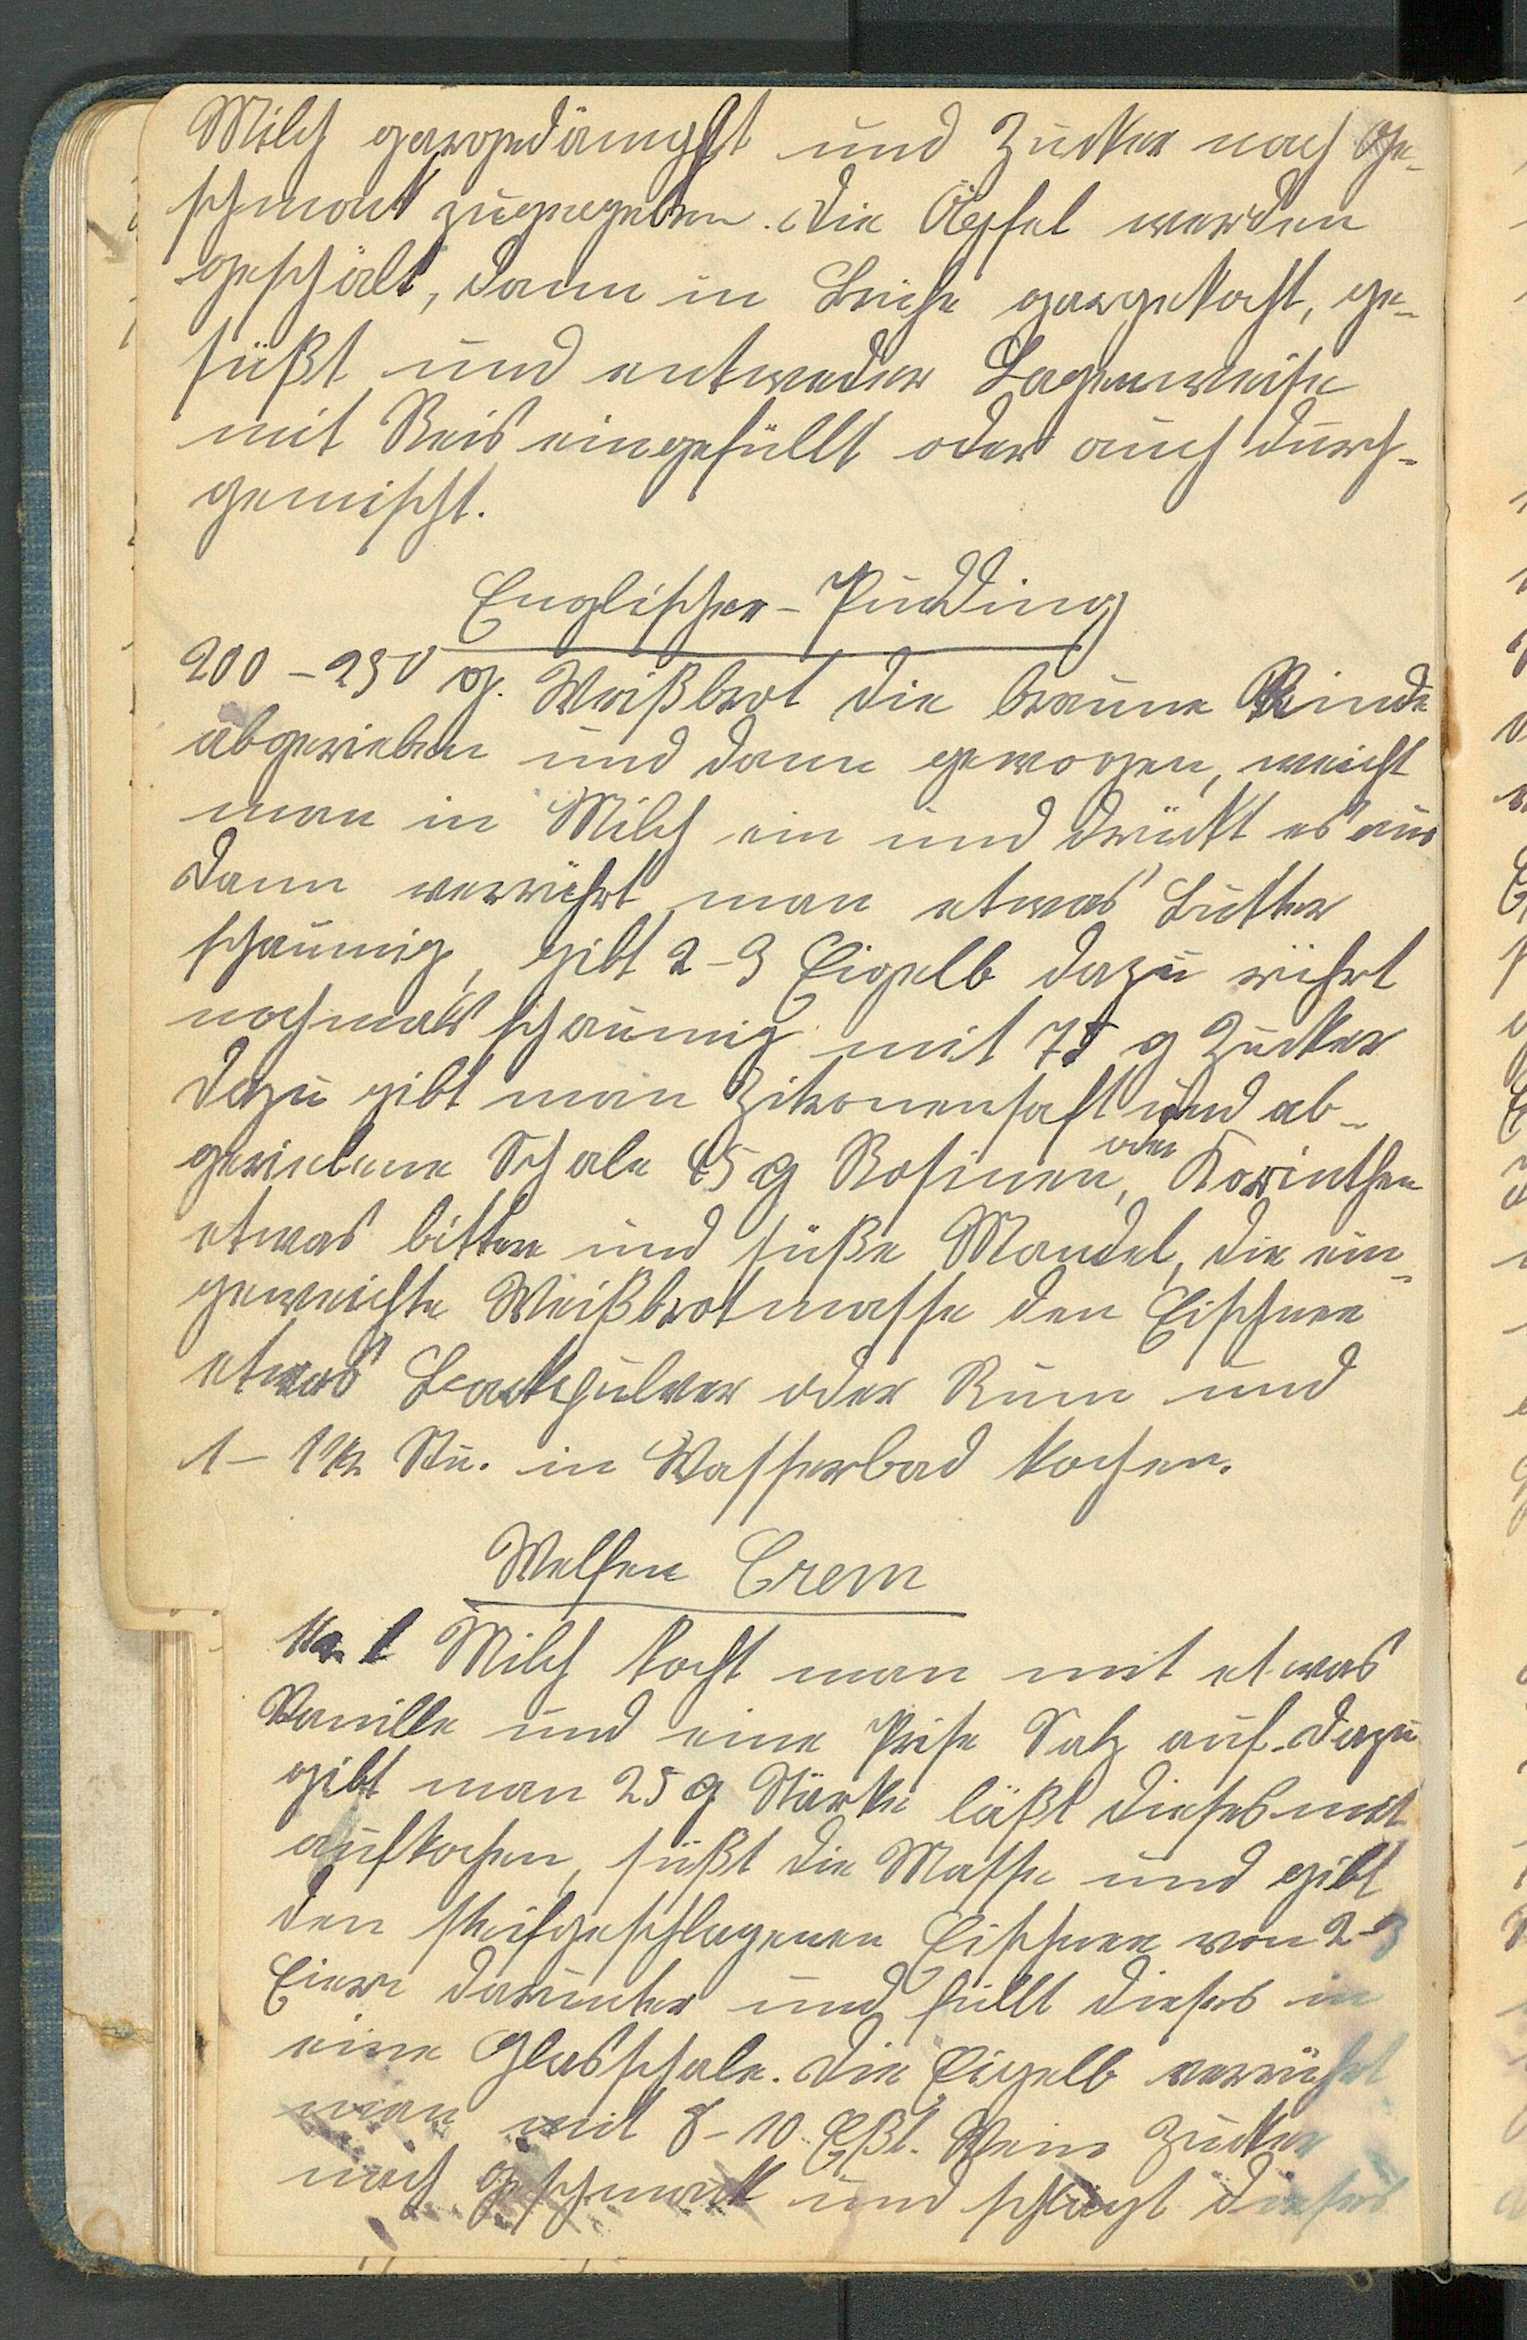 Milch gargedämpft und Zucker nach Ge-
schmack zugegeben. Die Äpfel werden
geschält, dann in Brühe gargekocht, ge-
süßt und entweder Lagenweise
mit Reis eingefüllt oder auch durch-
gemischt.
Englischer-Pudding
200-250 g. Weißbrot die braune Rinde
abgerieben und dann gewogen, weicht
man in Milch ein und drückt es aus
dann verrührt man etwas Butter
schaumig, gibt 2-3 Eigelb dazu rührt
nochmals schaumig mit 75 g Zucker
dazu gibt man Zitronensaft und ab-
geriebene Schale 45 g Rosinen, oder Korinthen
etwas bittere und süße Mandel, die ein-
geweichte Weißbrotmasse den Eischnee
etwas Backpulver oder Rum und
1-1 1/2 Stu. in Wasserbad kochen.
Welfen Crem
1/2 l Milch kocht man mit etwas
Vanille und eine Prise Salz auf. dazu
gibt man 25 g Stärke läßt dieses mit
aufkochen, süßt die Masse und gibt
den steifgeschlagenen Eischnee von 2-3
Eiern darunter und füllt dieses in
eine Glasschale. Die Eigelb verrührt
man mit 8-10 Eßl. Wein Zucker
nach Geschmack und schlägt dieses